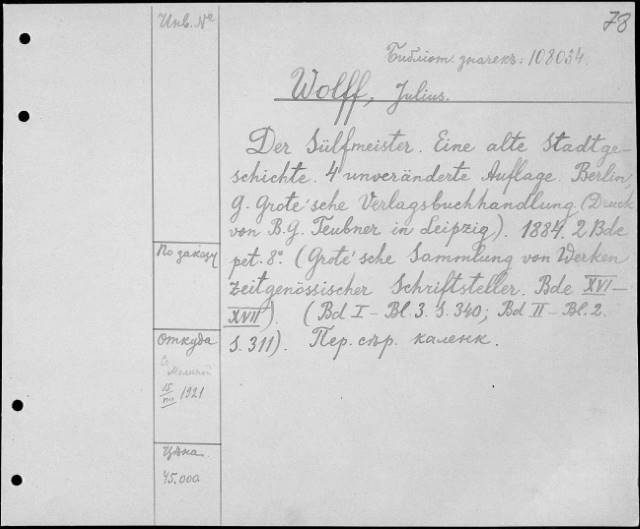 78
Инв. №
Библіот. значекъ: 108034.
Wolff, Julius.
Der Sülfmeister. Eine alte Stadtge-
schichte. 4 unveränderte Auflage. Berlin,
G. Grote'sche Verlagsbuchhandlung (Druck
von B. G. Teubner in Leipzig). 1884. 2 Bde
pet. 8°. (Grote'sche Sammlung von Werken
zeitgenössischer Schriftsteller. Bde XVI–
XVII). (Bd I – Bl. 3. S. 340; Bd II – Bl. 2.
S. 311). Пер. сѣр. каленк.
По заказу
Откуда
1921
Цѣна
45.000